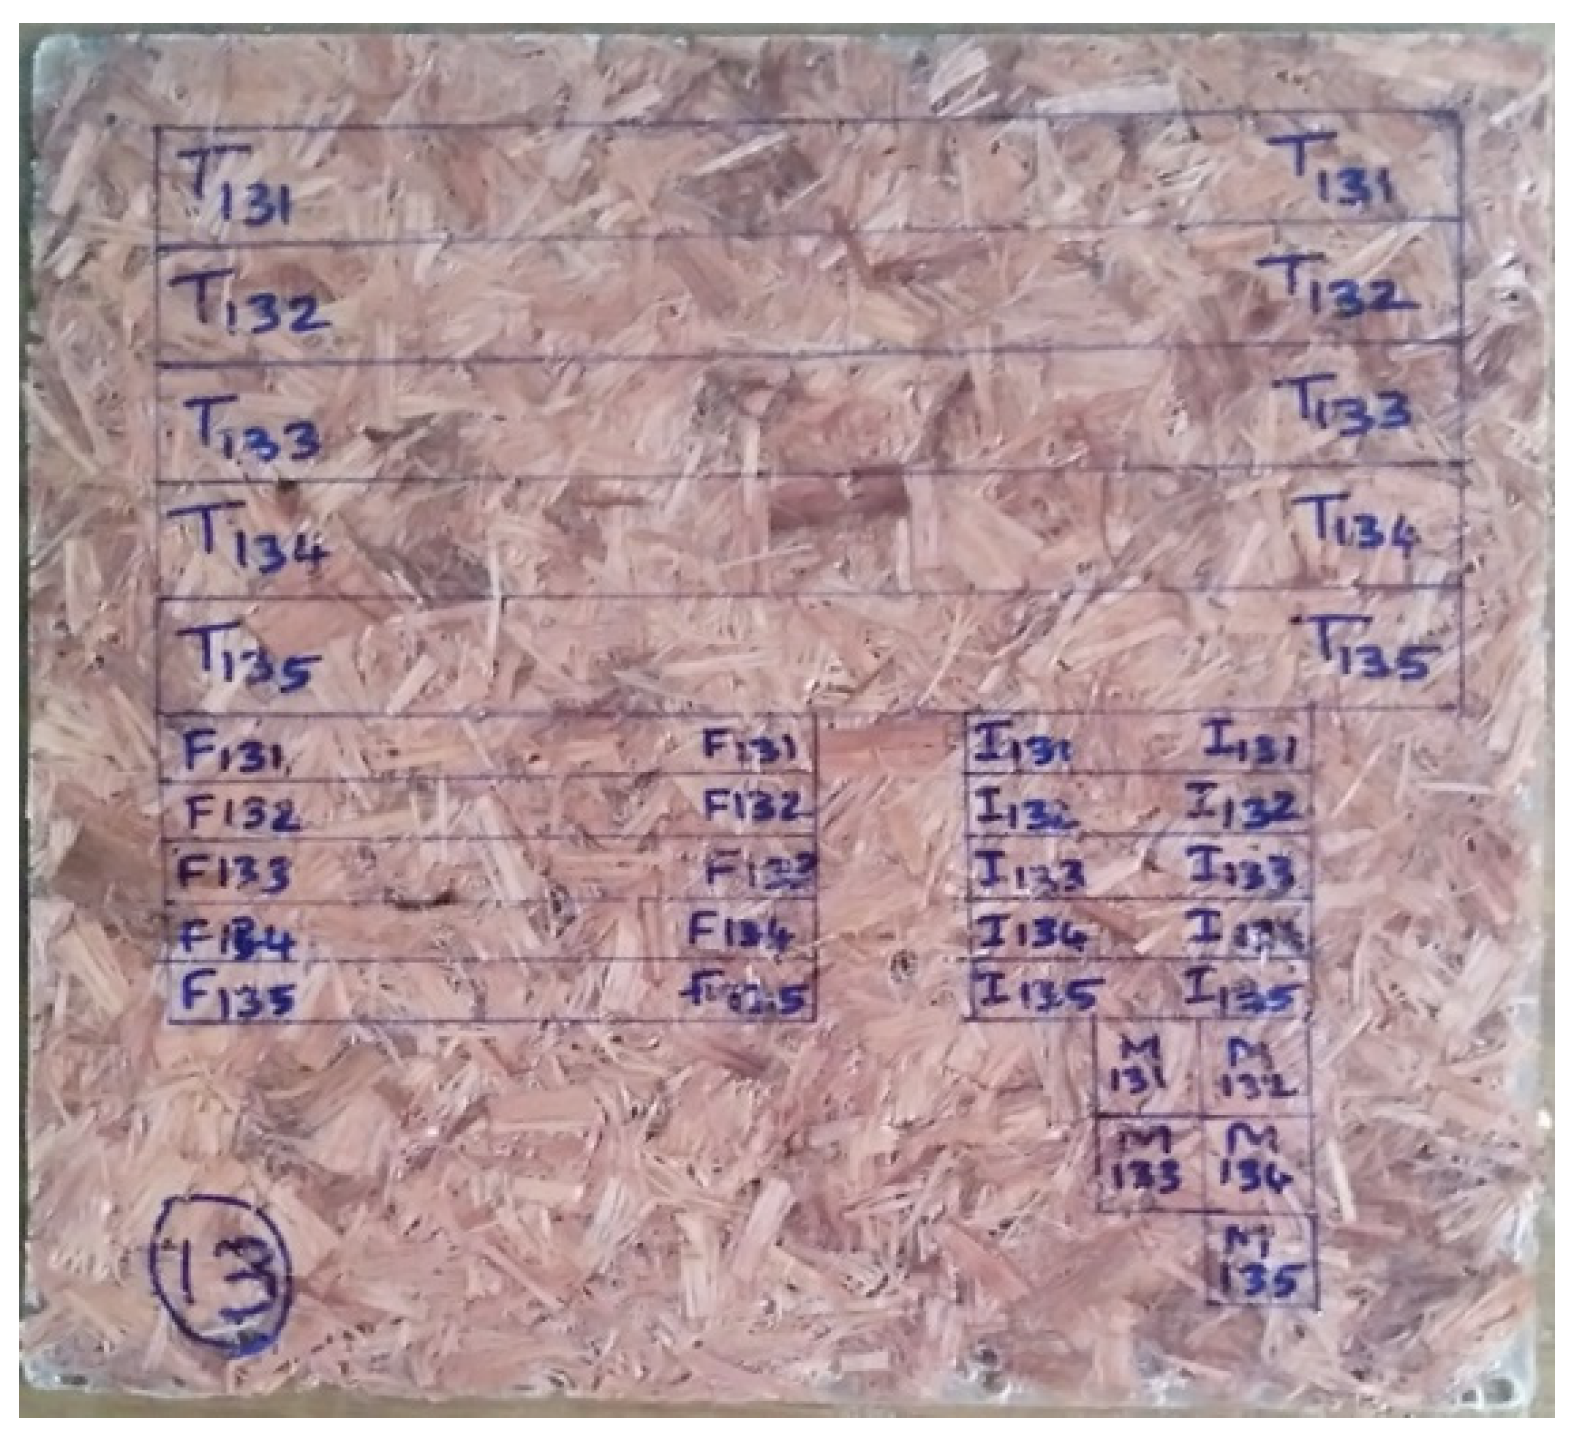 T131 T131
T132 T132
T133 T133
T134 T134
T135 T135
F131 F131
F132 F132
F133 F133
F134 F134
F135 F135
I131 I131
I132 I132
I133 I133
I134 I134
I135 I135
M M
131 132
M M
133 134
M
135
13